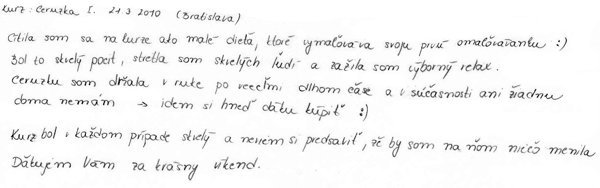 Kurz: Ceruzka I. 21.3.2010 (Bratislava)
Cítila som sa na kurze ako malé dieťa, ktoré vymaľováva svoju prvú omaľovávanku :)
Bol to skvelý pocit, stretla som skvelých ľudí a zažila som výborný relax.
Ceruzku som držala v ruke po veľmi dlhom čase a v súčasnosti ani žiadnu
doma nemám → idem si hneď dáku kúpiť :)
Kurz bol v každom prípade skvelý a neviem si predsaviť, že by som na ňom niečo menila
Ďakujem Vám za krásny víkend.